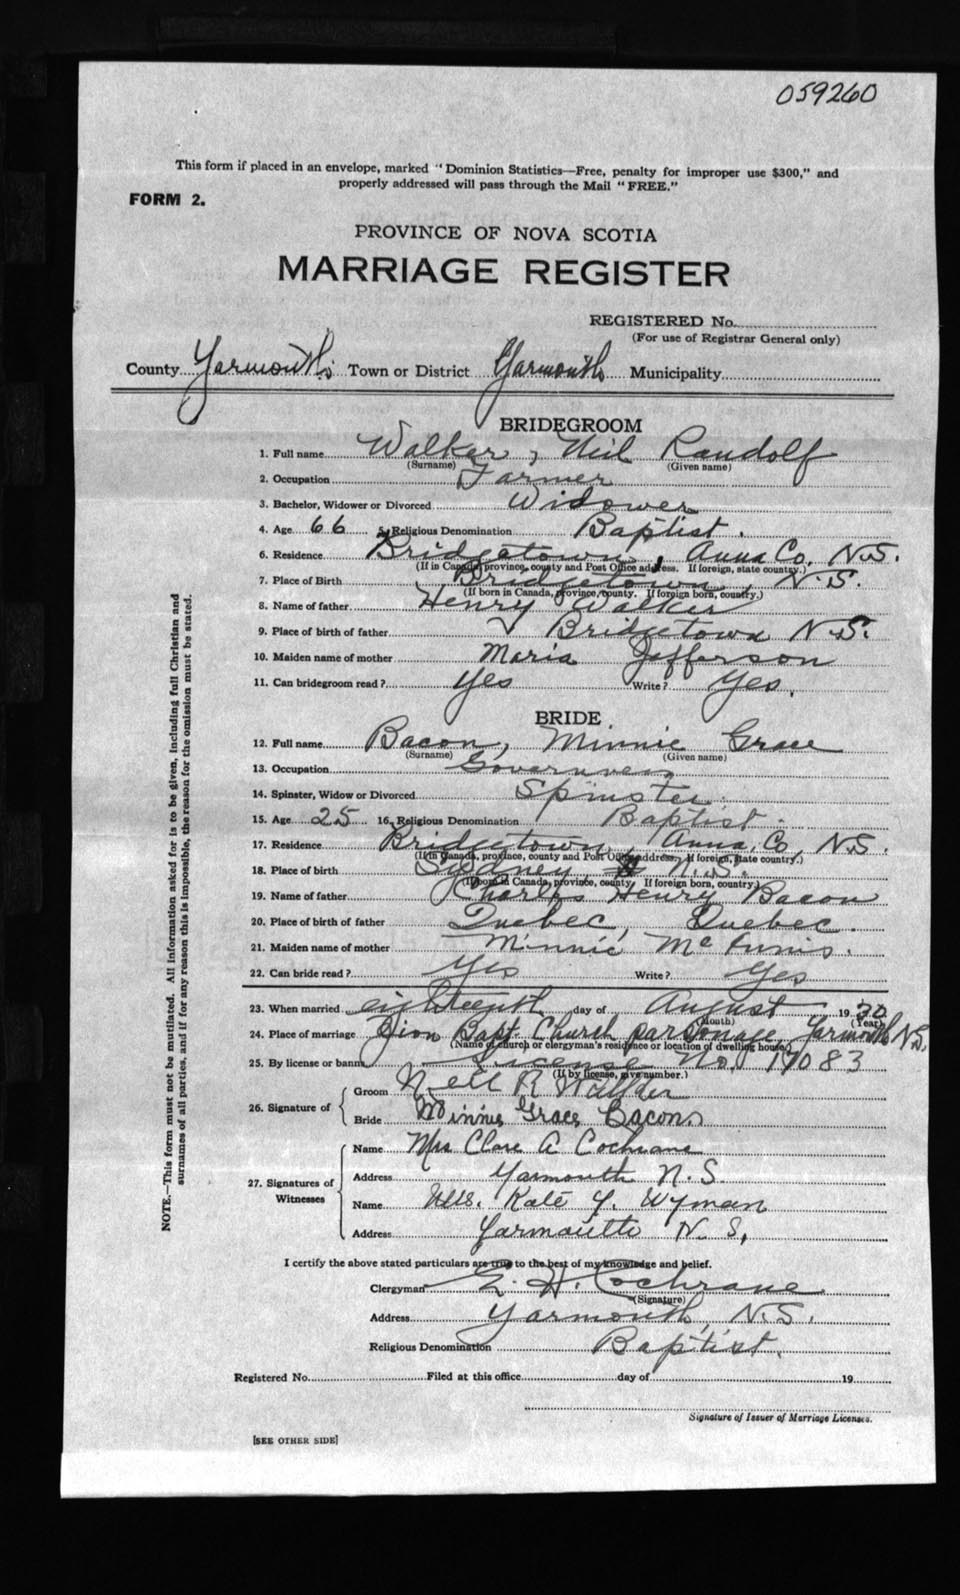 059260
This form if placed in an envelope, marked "Dominion Statistics—Free, penalty for improper use $300," and
properly addressed will pass through the Mail "FREE."
FORM 2.
PROVINCE OF NOVA SCOTIA
MARRIAGE REGISTER
REGISTERED No.
(For use of Registrar General only)
County Yarmouth Town or District Yarmouth Municipality
BRIDEGROOM
1. Full name Walker, Neil Randolf
(Surname) (Given name)
2. Occupation Farmer
3. Bachelor, Widower or Divorced Widower
4. Age 66 5. Religious Denomination Baptist.
6. Residence Bridgetown, Anna Co, N.S.
(If in Canada, province, county and Post Office address. If foreign, state country.)
7. Place of Birth Bridgetown, N.S.
(If born in Canada, province, county. If foreign born, country.)
8. Name of father Henry Walker
9. Place of birth of father Bridgetown N.S.
10. Maiden name of mother Maria Jefferson
11. Can bridegroom read? Yes Write? Yes.
BRIDE
12. Full name Bacon, Minnie Grace
(Surname) (Given name)
13. Occupation Governess
14. Spinster, Widow or Divorced Spinster.
15. Age 25 16. Religious Denomination Baptist.
17. Residence Bridgetown, Anna. Co, N.S.
(If in Canada, province, county and Post Office address. If foreign, state country.)
18. Place of birth Sydney, N.S.
(If born in Canada, province, county. If foreign born, country.)
19. Name of father Charles Henry Bacon
20. Place of birth of father Quebec, Quebec.
21. Maiden name of mother Minnie McInnis.
22. Can bride read? Yes Write? Yes
23. When married eighteenth day of August 1930
(Month) (Year)
24. Place of marriage Zion Bapt. Church parsonage, Yarmouth N.S.
(Name of church or clergyman's residence or location of dwelling house)
25. By license or banns License No. 17083
(If by license, give number.)
26. Signature of
Groom Neil R Walker
Bride Minnie Grace Bacon
27. Signatures of Witnesses
Name Mrs Clare A Cochrane
Address Yarmouth N.S.
Name Mrs. Kate Y. Wyman
Address Yarmouth N.S.
I certify the above stated particulars are true to the best of my knowledge and belief.
Clergyman E. H. Cochrane
(Signature)
Address Yarmouth, N.S.
Religious Denomination Baptist.
Registered No. Filed at this office day of 19
Signature of Issuer of Marriage Licenses.
[SEE OTHER SIDE]
NOTE.—This form must not be mutilated. All information asked for is to be given, including full Christian and
surnames of all parties, and if for any reason this is impossible, the reason for the omission must be stated.